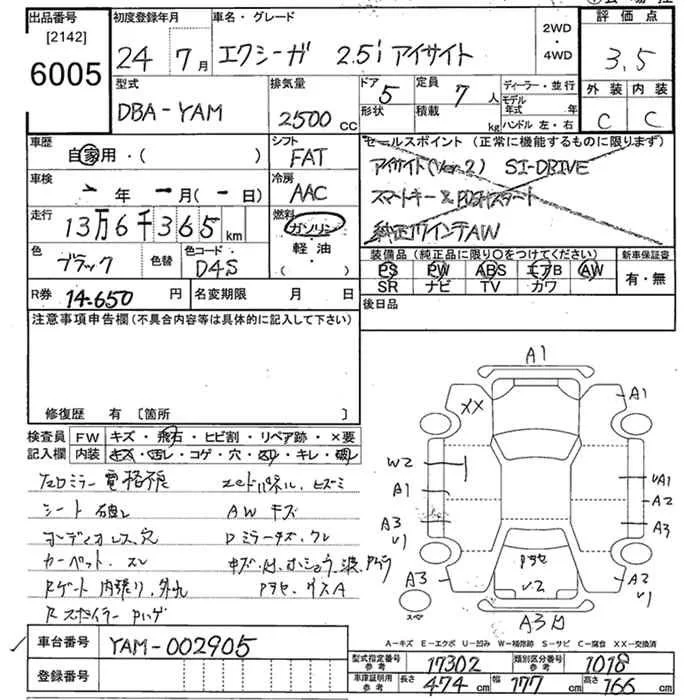 出品番号
[2142]
6005
初度登録年月
24年 7月
車名・グレード
エクシーガ 2.5i アイサイト
2WD
・
4WD
評価点
3.5
外装 内装
C C
型式
DBA-YAM
排気量
2500 CC
ドア 5
形状
定員 7 人
積載 kg
ディーラー・並行
モデル年式 年
ハンドル 左・右
車歴
自家用・( )
シフト
FAT
車検
年 月( 日)
冷房
AAC
走行
13万6千365 km
燃料
ガソリン
軽・油
( )
色
ブラック
色替
色コード
D4S
R券 14,650 円
名変期限 月 日
セールスポイント(正常に機能するものに限ります)
アイサイト(Ver.2) SI-DRIVE
スマートキー&Pushスタート
純正17インチAW
装備品(純正品に限り〇をつけてください)
PS PW ABS エアB AW
SR ナビ TV カワ
新車保証書
有・無
後日品
注意事項申告欄(不具合内容等は具体的に記入して下さい)
修復歴 有 [箇所 ]
検査員記入欄
FW キズ・飛石・ヒビ割・リペア跡・×要
内装 キズ・汚レ・コゲ・穴・スリ・キレ・破レ
シート 破レ
AW キズ
オーディオレス、穴
カーペット、スレ
Rゲート 内張り、外れ
Rスポイラー Pハゲ
A1
XX
A1
W2
A1
A3
V1
A3
スペア
UA1
A2
A3
V1
A2
V1
Pヨセ
V2
A3
A-キズ E-エクボ U-凹み W-補修跡 S-サビ C-腐食 XX-交換済
車台番号 YAM-002905
登録番号
型式指定番号 参考 17302
類別区分番号 参考 1018
車庫証明用 参考 長さ 474 cm 幅 177 cm 高さ 166 cm